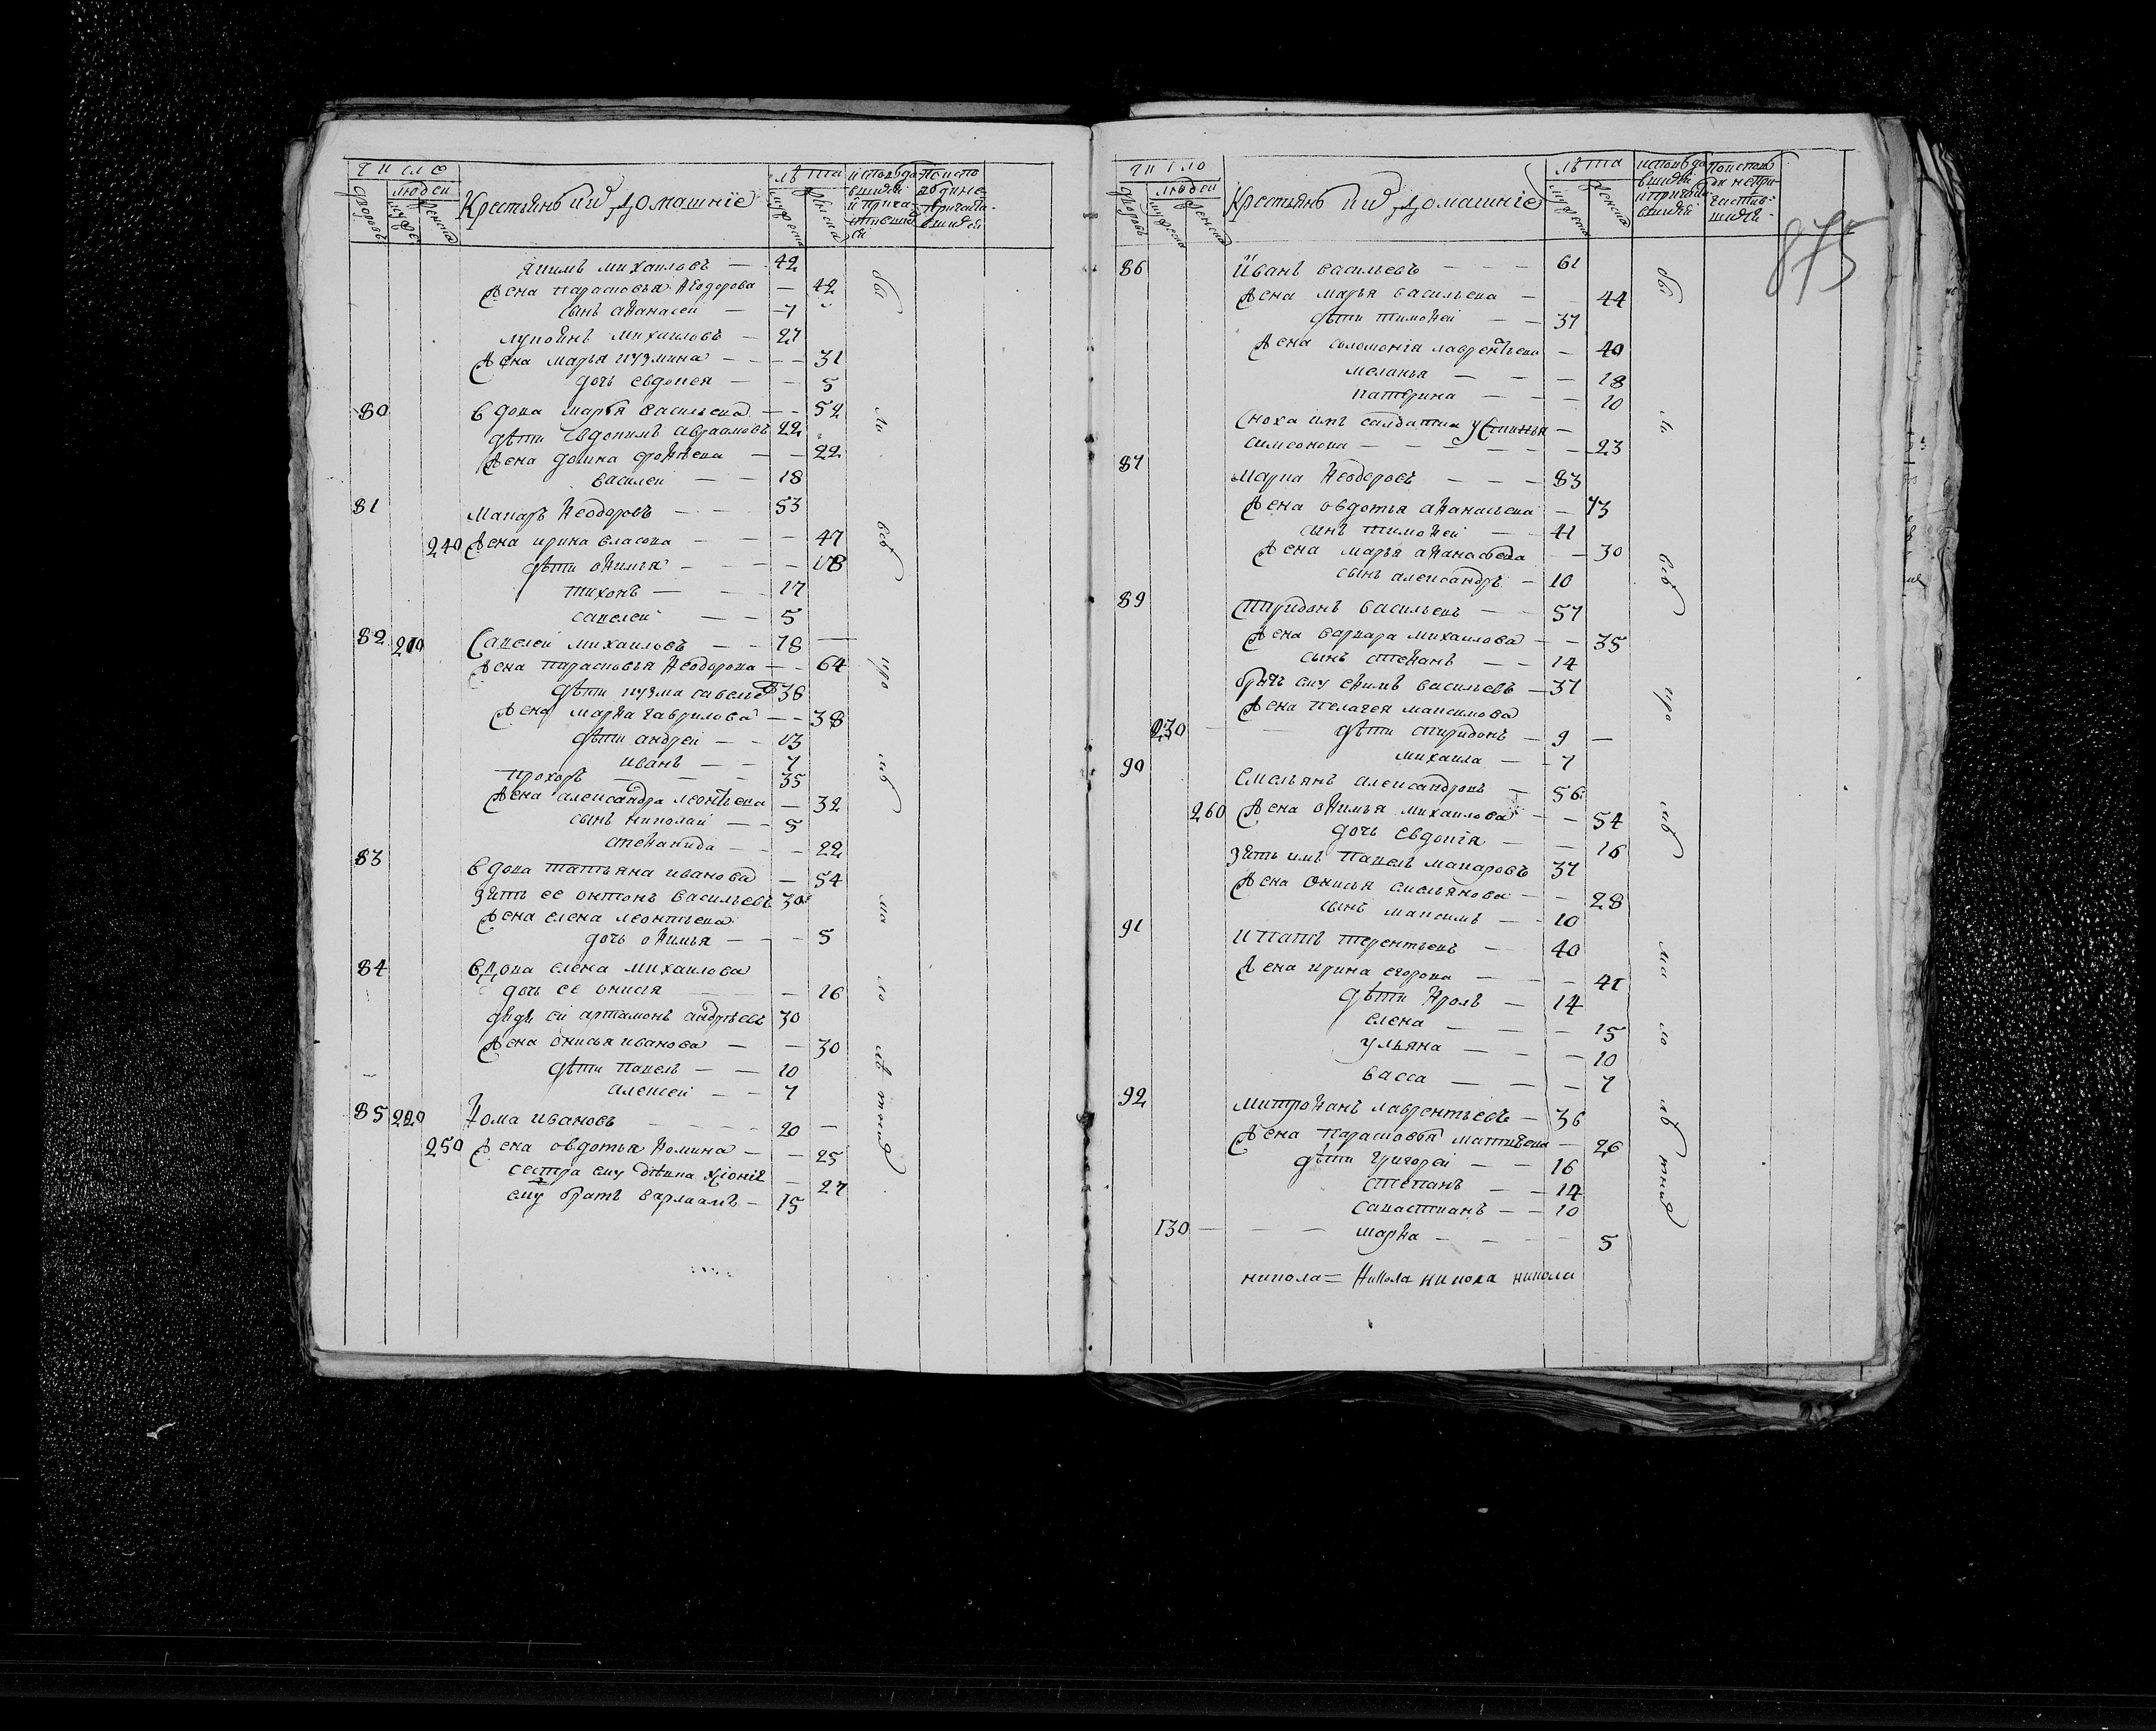 число
людей
дворовъ
мужеска
женска
Крестьянъ ий домашніе
лѣта
мужеска
женска
якимъ михаиловъ — 42
жена парасковья ѳеодорова — 42
сынъ аѳанасеи — 7
лукоянъ михаиловъ — 27
жена марья кузмина — — — 31
дочь евдокея — — 5
80 вдова марья васильева — — 52
дѣти Евдокимъ авраамовъ 22
жена домна фоѳѣева — — 22
василеи — — 18
81 макаръ ѳеодоровъ — — 53
240 жена ирина власова — — 47
дѣти оѳимья — — — 18
тихонъ — — 17
савелеи — — 5
82 210 Савелеи михаиловъ — — 78
жена парасковья ѳеодорова — — 64
дѣти кузма савелевъ 38
жена марѳа гаврилова — — 38
дѣти андреи — — 13
иванъ — — 7
прохоръ — — — 35
жена александра леонтьева — 32
сынъ николаи — — 5
степанида — — — 22
83 вдова татьяна иванова — 54
зять ее онтонъ васильевъ 30
жена елена леонтьева
дочь оѳимья — — — 5
84 вдова елена михаилова
дочь ее онисія — 16
дядя еи артамонъ андрѣевъ 30
жена онисья иванова — — 30
дѣти павелъ — — 10
алексеи — — 7
85 220 ѳома ивановъ — — — — 20 —
250 жена овдотья ѳомина — — 25
сестра ему дѣвица Хіоніе — 27
ему братъ варлаамъ — 15
875
число
людей
дворовъ
мужеска
женска
Крестьянъ ий домашніе
лѣта
мужеска
женска
86 Иванъ васильевъ — — — 61
жена марья васильева — — 44
дѣти тимоѳеи — — 37
жена соломонія лаврентьева — 40
меланья — — — 18
катерина — — — 10
сноха ихъ салдатка устинья —
симеонова — — — — — 23
87 марка ѳеодоровъ — — — 83
жена овдотья аѳанасьева — 73
сынъ тимоѳеи — — 41
жена марья аѳанасьева — — 30
сынъ александръ — 10
89 спиридонъ васильевъ — — 57
жена варвара михаилова — — 35
сынъ степанъ — — 14
братъ ему еѳимъ васильевъ — 37
жена пелагея максимова
230 — — дѣти спиридонъ — 9 —
михаила — — 7
90 емельянъ александровъ — 56
260 жена оѳимья михаилова — — 54
дочь евдокія — — 16
зять имъ павелъ макаровъ 37
жена онисья емельянова — — 28
сынъ максимъ — — 10
91 ипатъ терентьевъ — 40
жена ирина егорова — — — 41
дѣти ѳролъ — 14
елена — — — 15
ульяна — — — 10
васса — — — 7
92 митроѳанъ лаврентьевъ — 36
жена парасковья матвѣева — 26
дѣти григореи — — 16
степанъ — — 14
савастианъ — — 10
130 — — — марѳа — — — — 5
никола = Никола никола никола